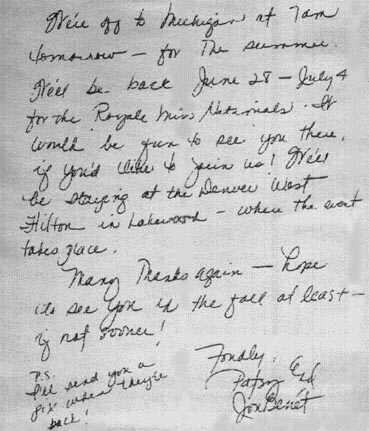 We're off to Michigan at 7am
tomorrow — for the summer.
We'll be back June 28 - July 4
for the Royale Miss Nationals. It
would be fun to see you there,
if you'd like to join us! We'll
be staying at the Denver West
Hilton in Lakewood - where the event
takes place.
Many Thanks again — hope
to see you in the fall at least —
if not sooner!
Fondly,
Patsy and
JonBenét
P.S.
I'll send you a
pix when they're
back!